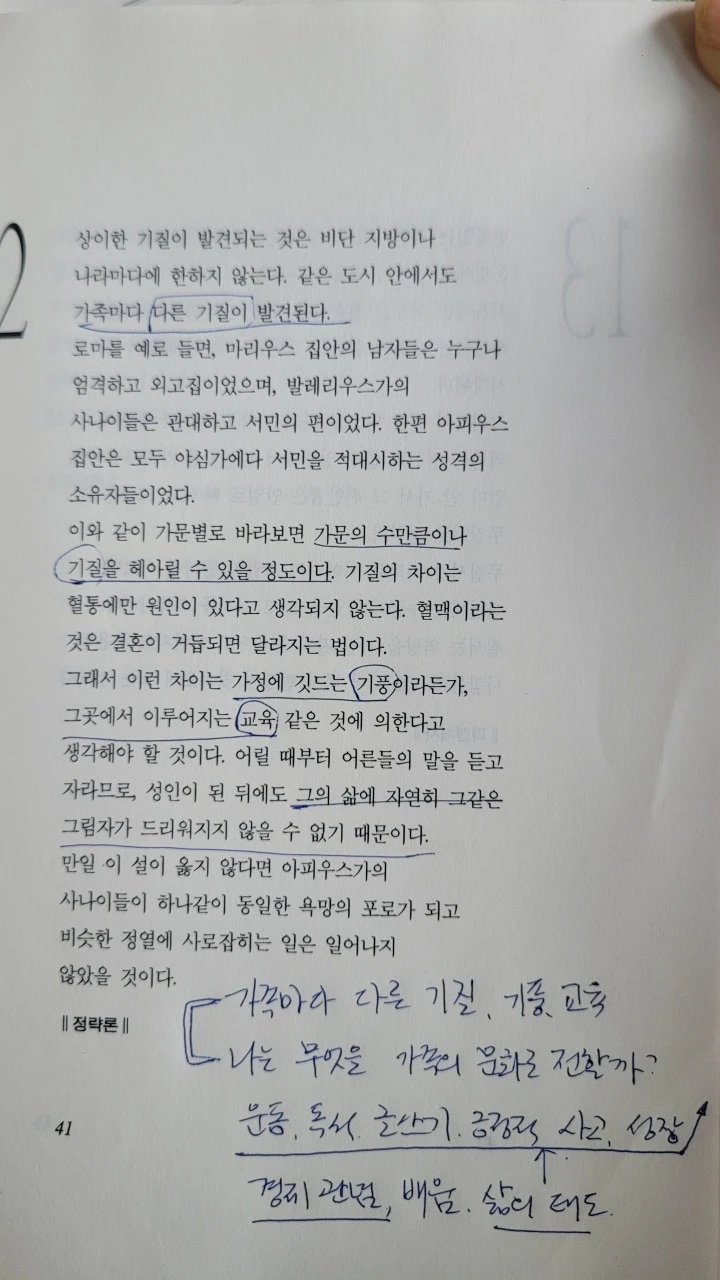 2
상이한 기질이 발견되는 것은 비단 지방이나
나라마다에 한하지 않는다. 같은 도시 안에서도
가족마다 다른 기질이 발견된다.
로마를 예로 들면, 마리우스 집안의 남자들은 누구나
엄격하고 외고집이었으며, 발레리우스가의
사나이들은 관대하고 서민의 편이었다. 한편 아피우스
집안은 모두 야심가에다 서민을 적대시하는 성격의
소유자들이었다.
이와 같이 가문별로 바라보면 가문의 수만큼이나
기질을 헤아릴 수 있을 정도이다. 기질의 차이는
혈통에만 원인이 있다고 생각되지 않는다. 혈맥이라는
것은 결혼이 거듭되면 달라지는 법이다.
그래서 이런 차이는 가정에 깃드는 기풍이라든가,
그곳에서 이루어지는 교육 같은 것에 의한다고
생각해야 할 것이다. 어릴 때부터 어른들의 말을 듣고
자라므로, 성인이 된 뒤에도 그의 삶에 자연히 그같은
그림자가 드리워지지 않을 수 없기 때문이다.
만일 이 설이 옳지 않다면 아피우스가의
사나이들이 하나같이 동일한 욕망의 포로가 되고
비슷한 정열에 사로잡히는 일은 일어나지
않았을 것이다.
‖정략론‖
가족마다 다른 기질, 기풍, 교육
나는 무엇을 가족의 문화로 전할까?
운동, 독서, 글쓰기, 긍정적 사고, 성장
41
경제 관념, 배움, 삶의 태도.
13